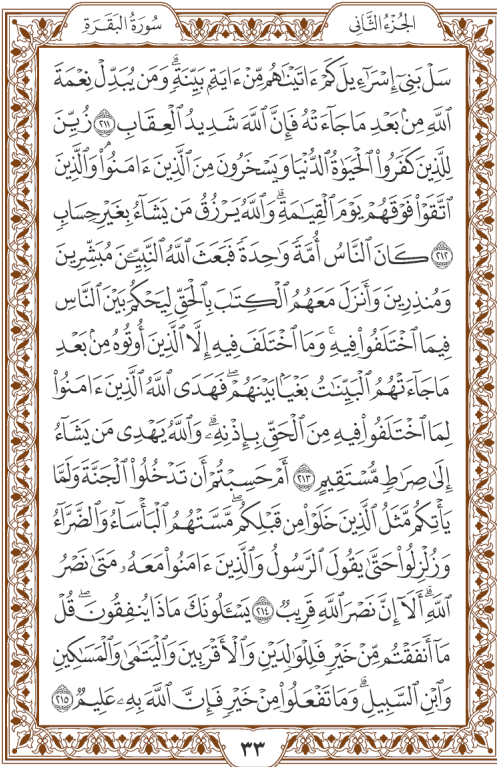 الجزء الثاني
سورة البقرة
سَلْ بَنِىٓ إِسْرَٰٓءِيلَ كَمْ ءَاتَيْنَٰهُم مِّنْ ءَايَةٍۭ بَيِّنَةٍۗ وَمَن يُبَدِّلْ نِعْمَةَ
ٱللَّهِ مِنۢ بَعْدِ مَا جَآءَتْهُ فَإِنَّ ٱللَّهَ شَدِيدُ ٱلْعِقَابِ ٢١١ زُيِّنَ
لِلَّذِينَ كَفَرُوا۟ ٱلْحَيَوٰةُ ٱلدُّنْيَا وَيَسْخَرُونَ مِنَ ٱلَّذِينَ ءَامَنُوا۟ۘ وَٱلَّذِينَ
ٱتَّقَوْا۟ فَوْقَهُمْ يَوْمَ ٱلْقِيَٰمَةِۗ وَٱللَّهُ يَرْزُقُ مَن يَشَآءُ بِغَيْرِ حِسَابٍ
٢١٢ كَانَ ٱلنَّاسُ أُمَّةً وَٰحِدَةً فَبَعَثَ ٱللَّهُ ٱلنَّبِيِّـۧنَ مُبَشِّرِينَ
وَمُنذِرِينَ وَأَنزَلَ مَعَهُمُ ٱلْكِتَٰبَ بِٱلْحَقِّ لِيَحْكُمَ بَيْنَ ٱلنَّاسِ
فِيمَا ٱخْتَلَفُوا۟ فِيهِۚ وَمَا ٱخْتَلَفَ فِيهِ إِلَّا ٱلَّذِينَ أُوتُوهُ مِنۢ بَعْدِ
مَا جَآءَتْهُمُ ٱلْبَيِّنَٰتُ بَغْيًۢا بَيْنَهُمْۖ فَهَدَى ٱللَّهُ ٱلَّذِينَ ءَامَنُوا۟
لِمَا ٱخْتَلَفُوا۟ فِيهِ مِنَ ٱلْحَقِّ بِإِذْنِهِۦۗ وَٱللَّهُ يَهْدِى مَن يَشَآءُ
إِلَىٰ صِرَٰطٍ مُّسْتَقِيمٍ ٢١٣ أَمْ حَسِبْتُمْ أَن تَدْخُلُوا۟ ٱلْجَنَّةَ وَلَمَّا
يَأْتِكُم مَّثَلُ ٱلَّذِينَ خَلَوْا۟ مِن قَبْلِكُمۖ مَّسَّتْهُمُ ٱلْبَأْسَآءُ وَٱلضَّرَّآءُ
وَزُلْزِلُوا۟ حَتَّىٰ يَقُولَ ٱلرَّسُولُ وَٱلَّذِينَ ءَامَنُوا۟ مَعَهُۥ مَتَىٰ نَصْرُ
ٱللَّهِۗ أَلَآ إِنَّ نَصْرَ ٱللَّهِ قَرِيبٌ ٢١٤ يَسْـَٔلُونَكَ مَاذَا يُنفِقُونَۖ قُلْ
مَآ أَنفَقْتُم مِّنْ خَيْرٍ فَلِلْوَٰلِدَيْنِ وَٱلْأَقْرَبِينَ وَٱلْيَتَٰمَىٰ وَٱلْمَسَٰكِينِ
وَٱبْنِ ٱلسَّبِيلِۗ وَمَا تَفْعَلُوا۟ مِنْ خَيْرٍ فَإِنَّ ٱللَّهَ بِهِۦ عَلِيمٌ ٢١٥
٣٣